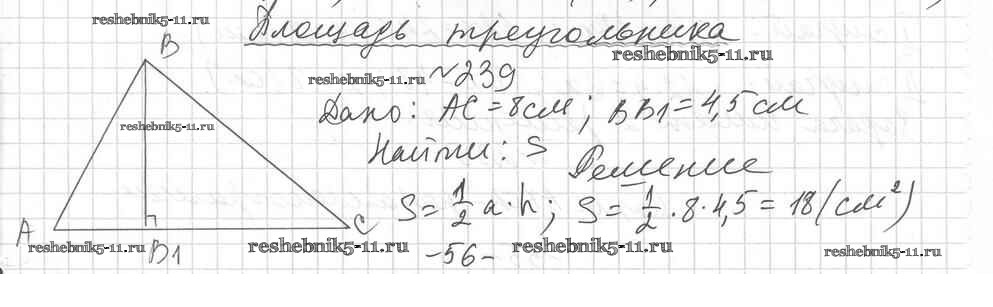 reshebnik5-11.ru
Площадь треугольника
reshebnik5-11.ru
B
reshebnik5-11.ru
№239
Дано: AC = 8см; BB1 = 4,5см
reshebnik5-11.ru
Найти: S
Решение
S = 1/2 a·h; S = 1/2 · 8 · 4,5 = 18 (см²)
A
C
reshebnik5-11.ru
B1
reshebnik5-11.ru
-56-
reshebnik5-11.ru
reshebnik5-11.ru